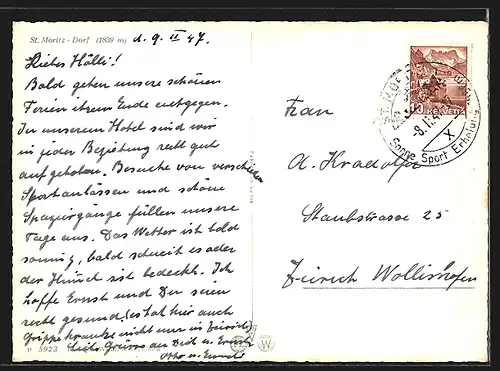 St. Moritz - Dorf (1839 m) d. 9. II 47.
Liebes Hölli!
Bald gehen unsere schönen
Ferien ihrem Ende entgegen.
In unserem Hotel sind wir
in jeder Beziehung recht gut
aufgehoben. Besuche von verschieden
Sportanlässen und schöne
Spaziergänge füllen unsere
Tage aus. Das Wetter ist bald
sonnig, bald schneit es oder
der Himmel ist bedeckt. Ich
hoffe Ernst und Du seien
recht gesund. (es hat hier auch
Grippekranke nicht nur in Zürich)
Grüsse an Dich u. Ernst
Otto u.
5923
Frau
A. Kradolfer
Staubstrasse 25
Zürich Wollishofen
ST. MORITZ
Sonne Sport Erholung
HELVETIA
10
X